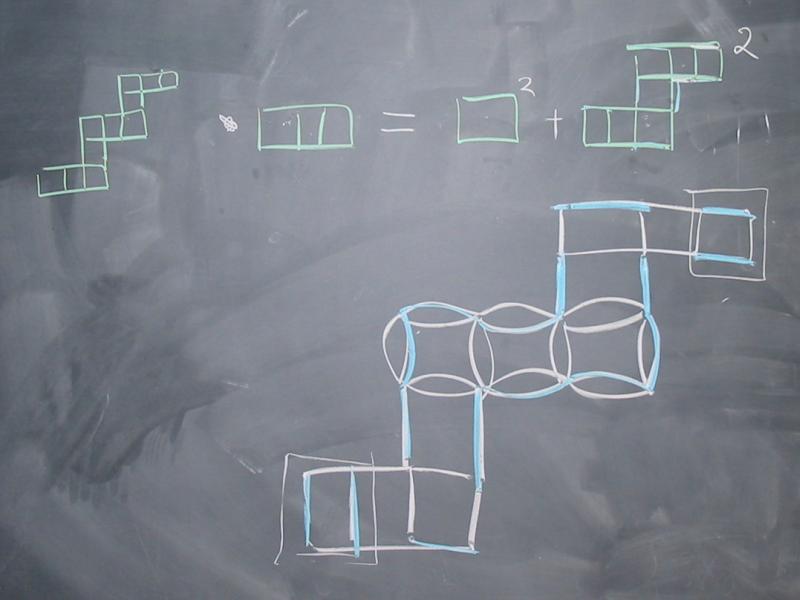 · = ² + ²